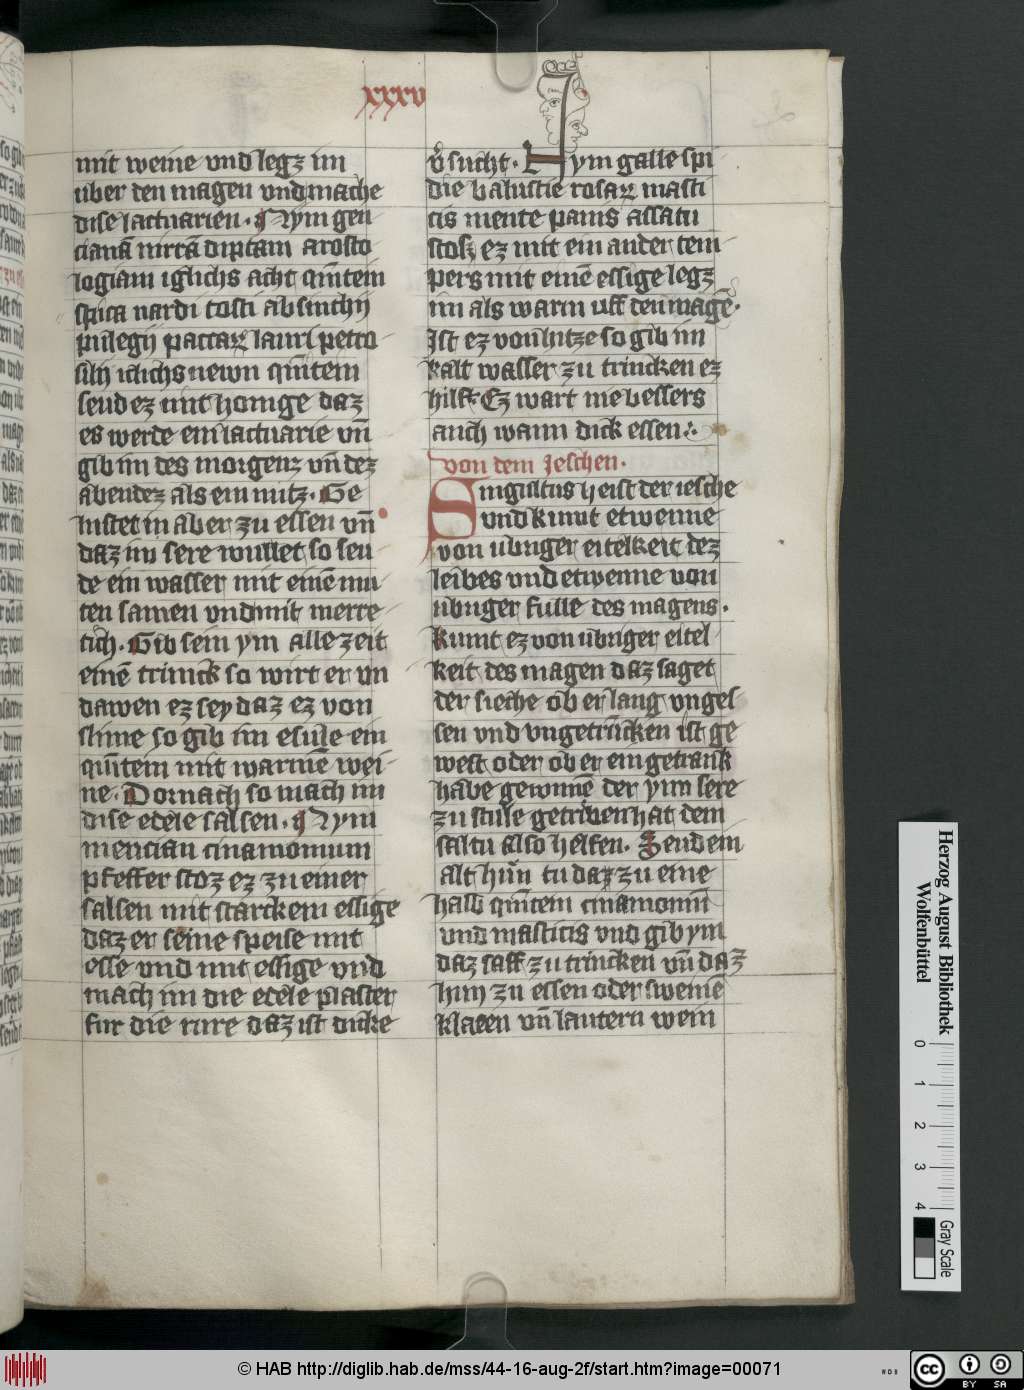 xxxv
mit weine vnd legz im
uber den magen vnd mache
dise lactuarien. Nym gen
cianā mirtā diptam aristo
logiam iglichs acht qu̅tein
spica nardi costi absinthij
pulegij paccar̄ lauri petro
silij iclichs newn qu̅tein
seud ez mit honige daz
es werde ein lactuarie vn̄
gib im des morgenz vn̄ dez
abendez als ein nutz. Ge
lustet in aber zu essen vn̄
daz im sere wullet so seu
de ein wasser mit einē mu
ten samen vnd mit merre
tich. Gib sein ym alle zeit
einē trinck so wirt er vn
dawen ez sey daz ez von
slime so gib im esule ein
qu̅tein mit warmē wei
ne. Dornach so mach im
dise edele salsen. Nym
mencian cinamomum
pfeffer stoz ez zu einer
salsen mit starckem essige
daz er seine speise mit
esse vnd mit essige vnd
mach im die edele plaster
fur die rure daz ist dicke
v̊sucht. Nym galle spi
die balustie rosar̄ masti
cis mente panis assatu
stosz ez mit ein ander tem
pers mit einē essige legz
im als warm uff den magē.
Ist ez von hitze so gib im
kalt wasser zu trincken ez
hilft Ez wart nie bessers
auch wann dick essen.
von dem Jeschen.
Singultus heist der iesche
vnd kumt etwenne
von ubriger eitelkeit dez
leibes vnd etwenne von
ubriger fulle des magens.
Kumt ez von ubriger eitel
keit des magen daz saget
der sieche ob er lang vngeſ
sen vnd vngetrūcken ist ge
west oder ob er ein getrank
habe gewunnē der ym sere
zu stule getriben hat dem
saltu also helfen. Seud ein
alt hūn tu dar zu eine
halb qu̅tein cinamomū
vnd masticis vnd gib ym
daz saff zu trincken vn̄ daz
hun zu essen oder sweine
klaeen vn̄ lautern wein
Herzog August Bibliothek
Wolfenbüttel
0 1 2 3 4
Gray Scale
© HAB http://diglib.hab.de/mss/44-16-aug-2f/start.htm?image=00071
cc BY SA